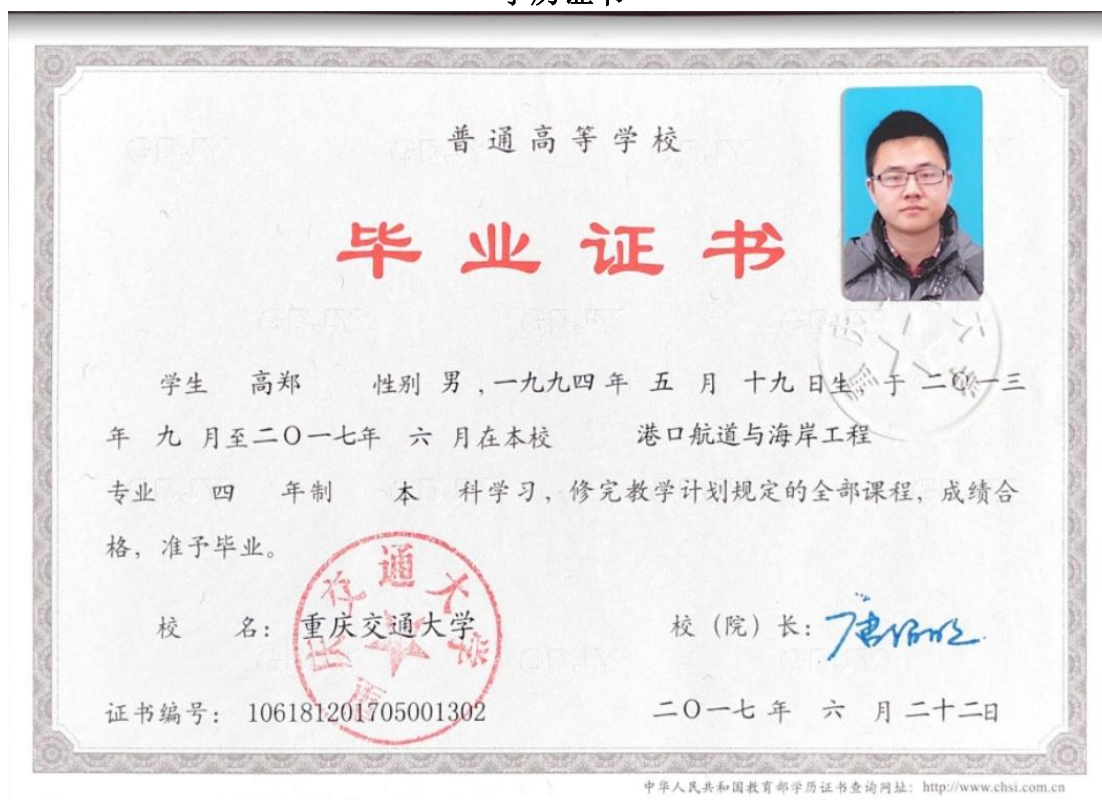 学历证书
普通高等学校
毕业证书
学生 高郑 性别 男 ,一九九四 年 五 月 十九 日生, 于 二〇一三
年 九 月至二〇一七年 六 月在本校 港口航道与海岸工程
专业 四 年制 本 科学习, 修完教学计划规定的全部课程, 成绩合
格, 准予毕业。
校 名: 重庆交通大学
重庆交通大学
校 (院) 长: 唐伯明
证书编号: 106181201705001302
二〇一七 年 六 月 二十二日
中华人民共和国教育部学历证书查询网址: http://www.chsi.com.cn